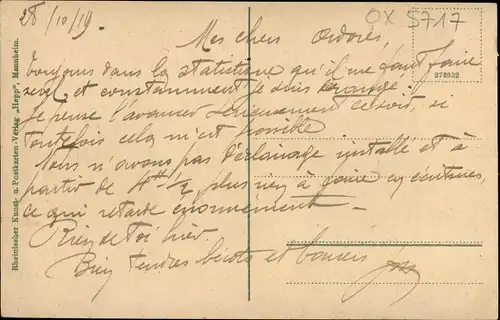 28/10/19.
OX 5717
Mes chers Adorés,
Toujours dans la statistique qu'il me faut faire
seul et constamment je suis dérangé.
Je pense l'avancer sérieusement ce soir, si
toutefois cela m'est possible.
Nous n'avons pas d'éclairage installé et à
partir de 4h 1/2 plus rien à faire en écritures,
ce qui retarde énormément.
Rien de toi hier.
Bien tendres bécots et bonsoir
278932
Rheinischer Kunst- u. Postkarten-Verlag „Hepp", Mannheim.